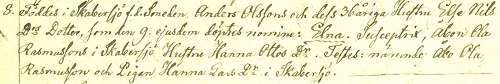 8. Föddes i Skabersjö f.d. Smeden Anders Olssons och dess 36 åriga Hustru Else Nils
Drs Dotter, som den 9. ejusdem döptes nomine: Elna. Susceptrix, Åbon Ola
Rasmussons i Skabersjö Hustru Hanna Ottos Dr. Testes: nämnde Åbo Ola
Rasmusson och Pigan Hanna Lars Dr. i Skabersjö.